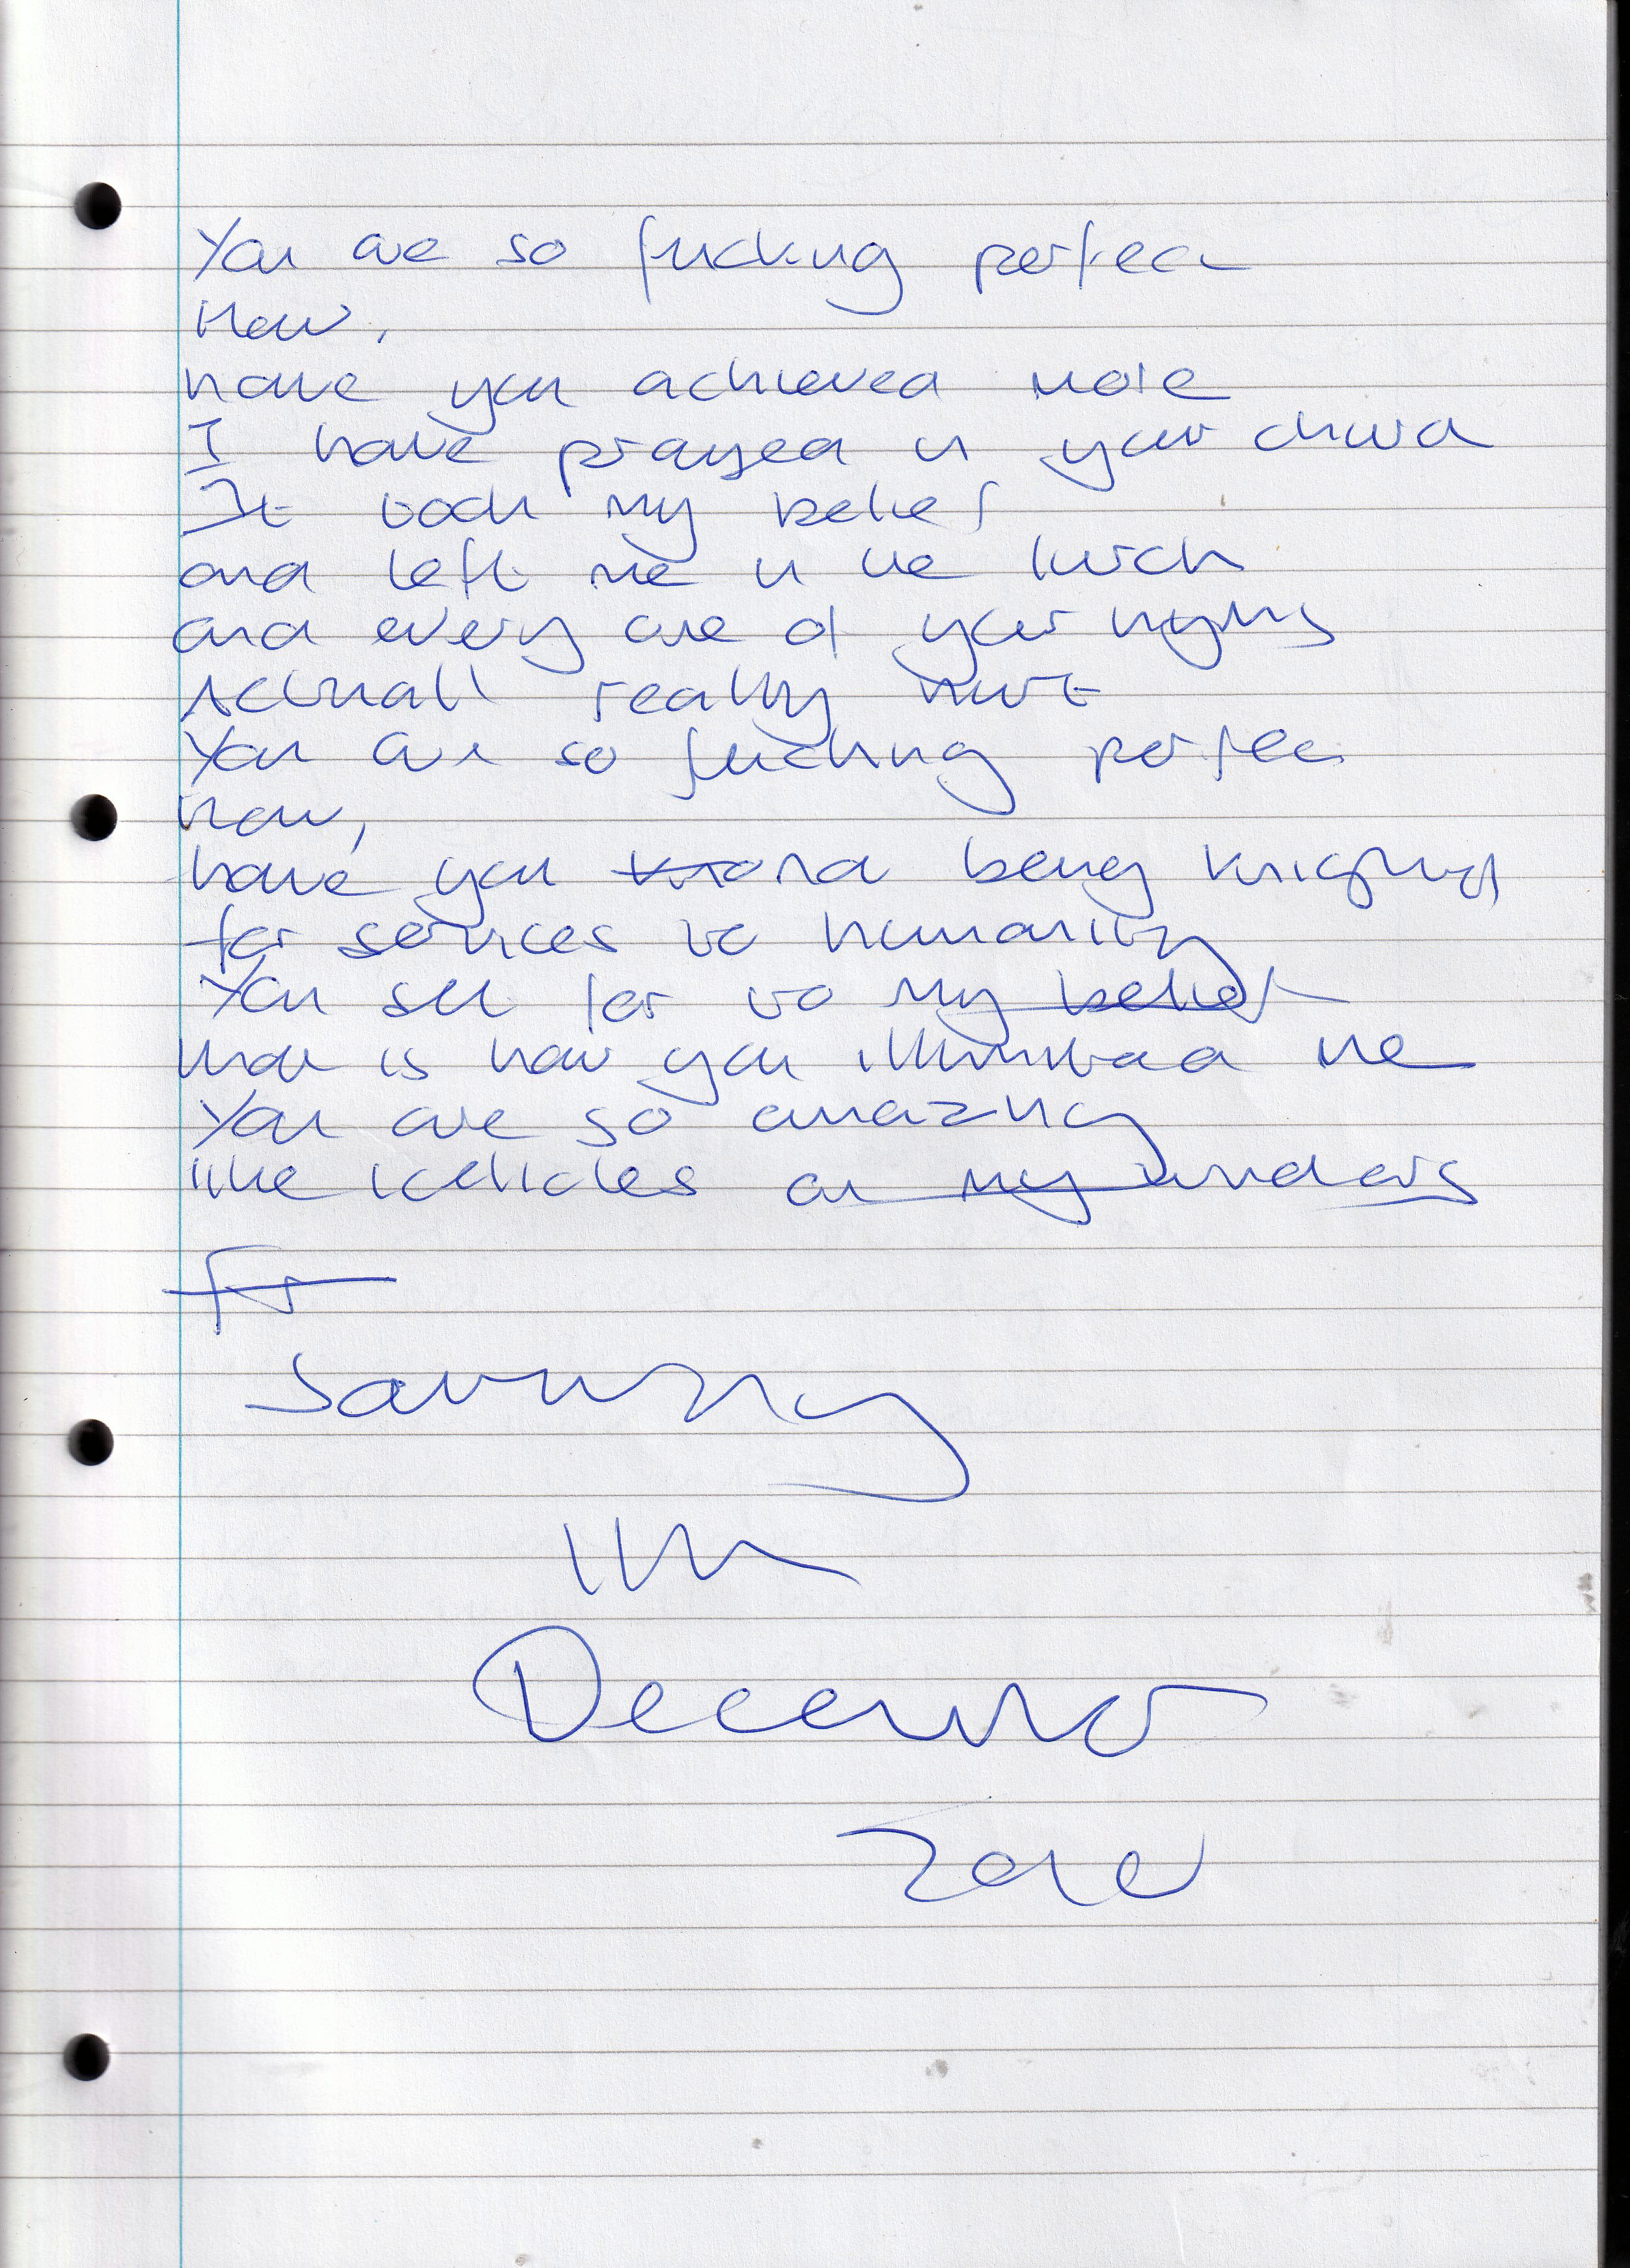 You are so fucking perfect
How,
have you achieved more
I have prayed in your church
It took my belief
and left me in the lurch
and every one of your hyms
Actuall really hurt
You are so fucking perfect
how,
have you and being knighted
for services to humanity
You see for to my belief
that is how you me
You are so amazing
like icelicles on my windows
December